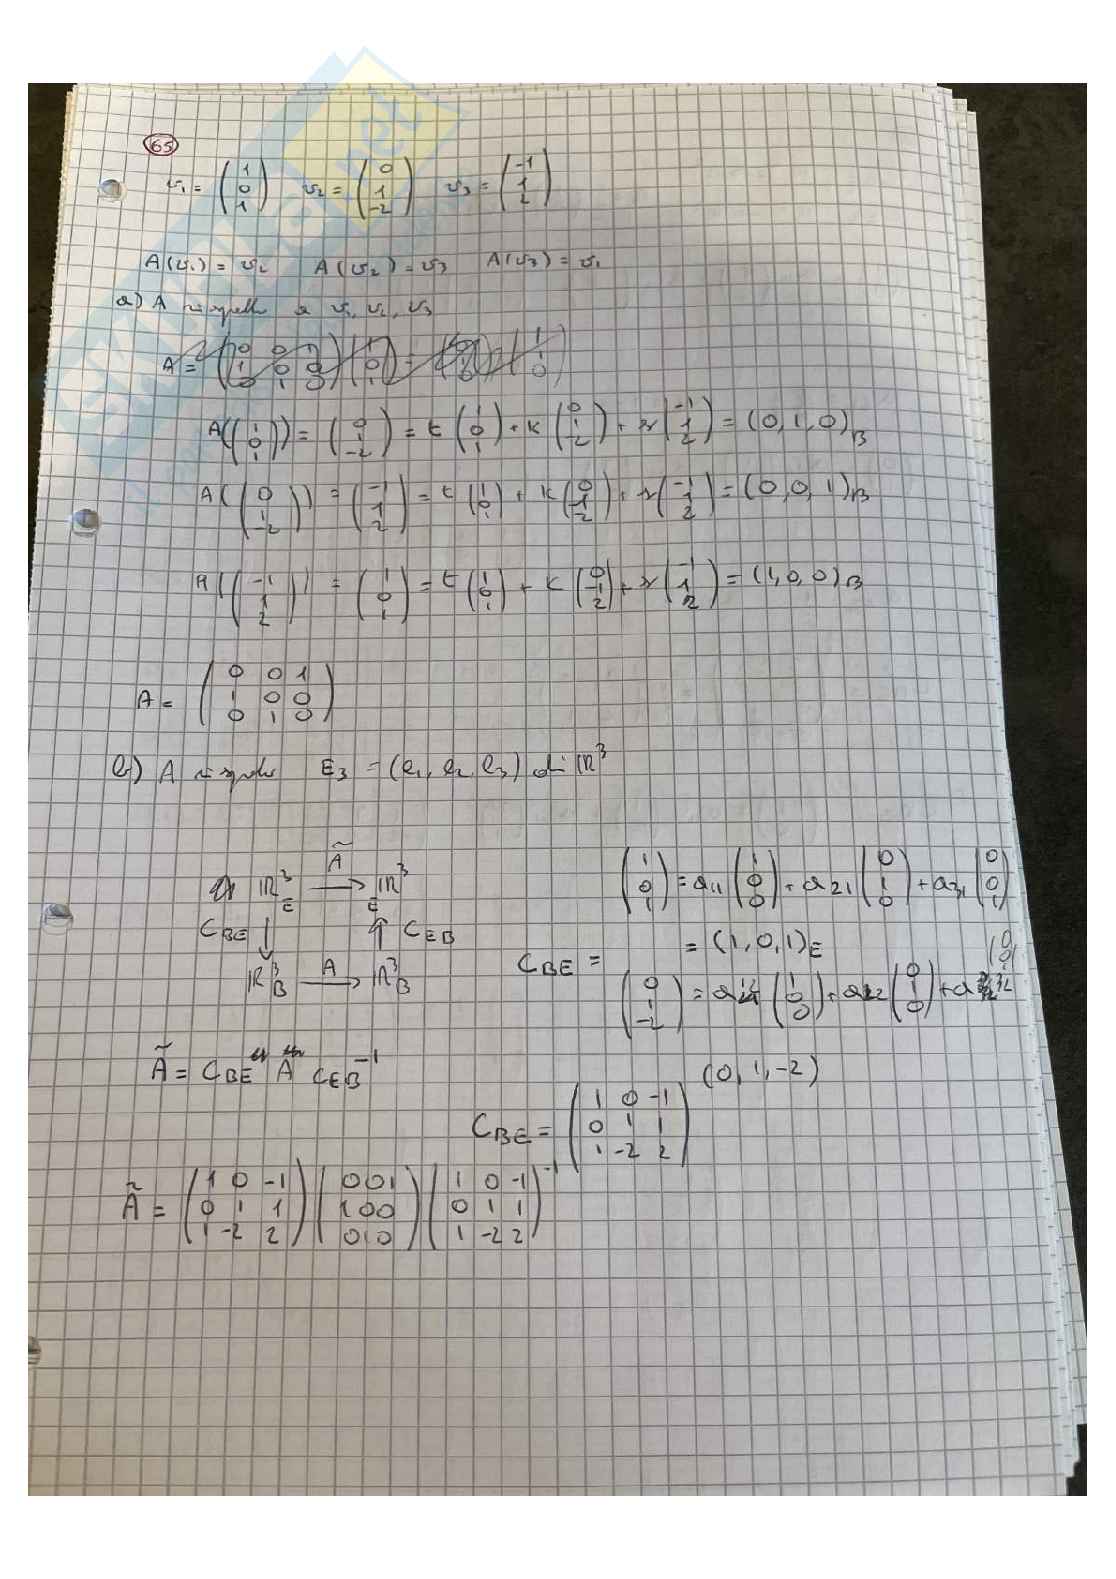 65
v₁ = (1 0 1) v₂ = (0 1 -2) v₃ = (-1 1 2)
A(v₁) = v₂ A(v₂) = v₃ A(v₃) = v₁
a) A rispetto a v₁, v₂, v₃
A((1 0 1)) = (0 1 -2) = t (1 0 1) + k (0 1 -2) + r (-1 1 2) = (0, 1, 0)B
A((0 1 -2)) = (-1 1 2) = t (1 0 1) + k (0 1 -2) + r (-1 1 2) = (0, 0, 1)B
A((-1 1 2)) = (1 0 1) = t (1 0 1) + k (0 1 2) + r (-1 1 2) = (1, 0, 0)B
A = (0 0 1
1 0 0
0 1 0)
b) A rispetto E₃ = (e₁, e₂, e₃) di ℝ³
ℝ³E —Ã→ Eℝ³
CBE ↓ ↑ CEB
ℝ³B —A→ ℝ³B
(1 0 1) = a₁₁ (1 0 0) + a₂₁ (0 1 0) + a₃₁ (0 0 1)
= (1, 0, 1)E
CBE =
(0 1 -2) = a₁₂ (1 0 0) + a₂₂ (0 1 0) + a₃₂ (0 0 1)
(0, 1, -2)
Ã = CBE A CEB⁻¹
CBE = (1 0 -1
0 1 1
1 -2 2)
Ã = (1 0 -1
0 1 1
1 -2 2) (0 0 1
1 0 0
0 1 0) (1 0 -1
0 1 1
1 -2 2)⁻¹